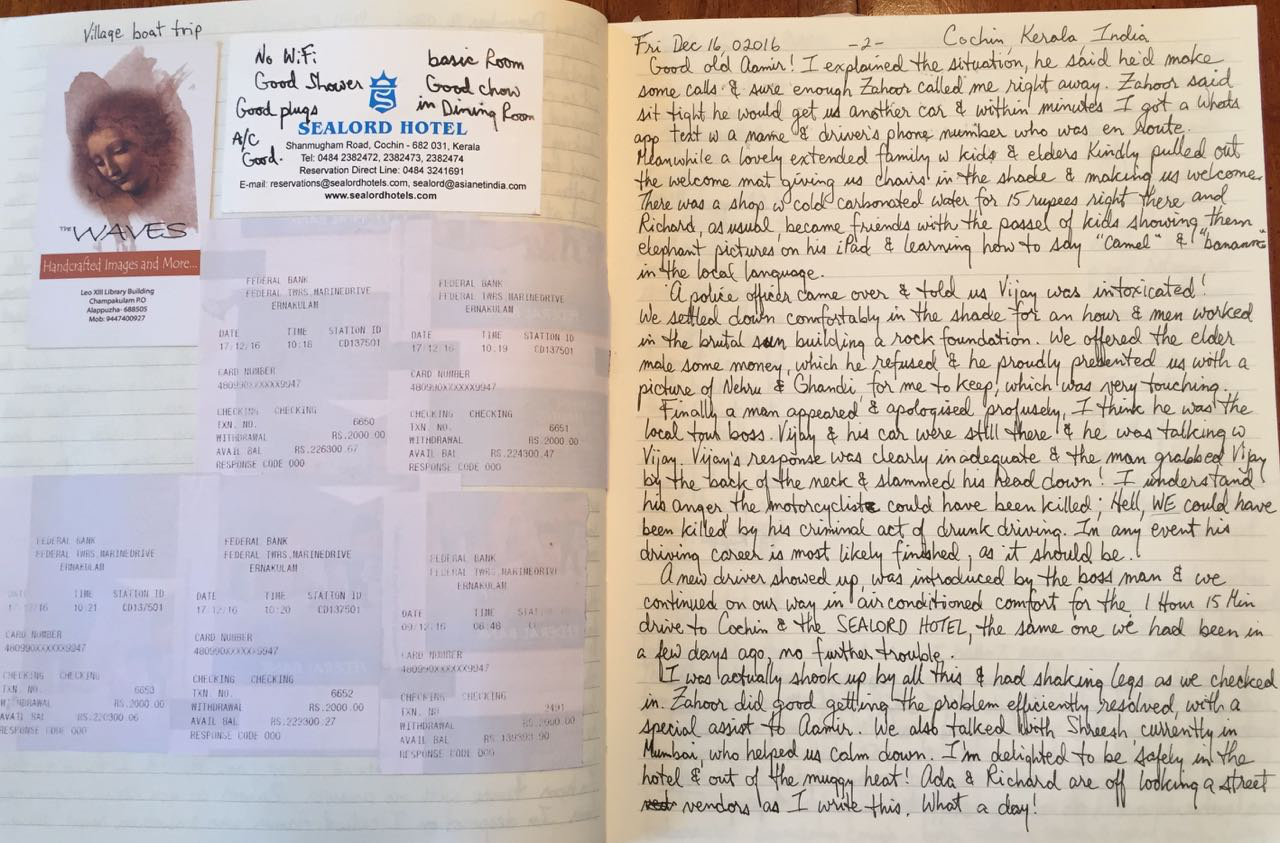 Village boat trip
THE WAVES
Handcrafted Images and More...
Leo XIII Library Building
Champakulam P.O
Alappuzha- 688505
Mob: 9447400927
No WiFi
Good Shower
Good plugs
A/C
Good.
basic Room
Good chow
in Dining Room
SEALORD HOTEL
Shanmugham Road, Cochin - 682 031, Kerala
Tel: 0484 2382472, 2382473, 2382474
Reservation Direct Line: 0484 3241691
E-mail: reservations@sealordhotels.com, sealord@asianetindia.com
www.sealordhotels.com
FEDERAL BANK
FEDERAL TWRS,MARINEDRIVE
ERNAKULAM
DATE TIME STATION ID
17/12/16 10:18 CD137501
CARD NUMBER
480990XXXXXX9947
CHECKING CHECKING
TXN. NO. 6650
WITHDRAWAL RS.2000.00
AVAIL BAL RS.226300.67
RESPONSE CODE 000
FEDERAL BANK
FEDERAL TWRS,MARINEDRIVE
ERNAKULAM
DATE TIME STATION ID
17/12/16 10:19 CD137501
CARD NUMBER
480990XXXXXX9947
CHECKING CHECKING
TXN. NO. 6651
WITHDRAWAL RS.2000.00
AVAIL BAL RS.224300.47
RESPONSE CODE 000
FEDERAL BANK
FEDERAL TWRS,MARINEDRIVE
ERNAKULAM
TIME STATION ID
17/12/16 10:21 CD137501
CARD NUMBER
480990XXXXXX9947
CHECKING CHECKING
TXN. NO. 6653
WITHDRAWAL RS.2000.00
AVAIL BAL RS.220300.06
RESPONSE CODE 000
FEDERAL BANK
FEDERAL TWRS,MARINEDRIVE
ERNAKULAM
DATE TIME STATION ID
17/12/16 10:20 CD137501
CARD NUMBER
480990XXXXXX9947
CHECKING CHECKING
TXN. NO. 6652
WITHDRAWAL RS.2000.00
AVAIL BAL RS.222300.27
RESPONSE CODE 000
FEDERAL BANK
FEDERAL TWRS,MARINEDRIVE
ERNAKULAM
DATE TIME
09/12/16 06:48
CARD NUMBER
480990XXXXXX9947
CHECKING CHECKING
TXN. NO 2491
WITHDRAWAL
AVAIL BAL
RESPONSE CODE 000
Fri Dec 16, 02016 -2- Cochin, Kerala, India
Good old Aamir! I explained the situation, he said he'd make
some calls & sure enough Zahoor called me right away. Zahoor said
sit tight he would get us another car & within minutes I got a Whats
app text w a name & driver's phone number who was en route.
Meanwhile a lovely extended family w kids & elders kindly pulled out
the welcome mat giving us chairs in the shade & making us welcome.
There was a shop w cold carbonated water for 15 rupees right there and
Richard, as usual, became friends with the passel of kids showing them
elephant pictures on his iPad & learning how to say "Camel" & "banana"
in the local language.
A police officer came over & told us Vijay was intoxicated!
We settled down comfortably in the shade for an hour & men worked
in the brutal sun building a rock foundation. We offered the elder
male some money, which he refused & he proudly presented us with a
picture of Nehru & Ghandi, for me to keep, which was very touching.
Finally a man appeared & apologised profusely, I think he was the
local tour boss. Vijay & his car were still there & he was talking w
Vijay. Vijay's response was clearly inadequate & the man grabbed Vijay
by the back of the neck & slammed his head down! I understand
his anger the motorcyclist could have been killed; Hell, WE could have
been killed by his criminal act of drunk driving. In any event his
driving career is most likely finished, as it should be.
A new driver showed up, was introduced by the boss man & we
continued on our way in air conditioned comfort for the 1 Hour 15 Min
drive to Cochin & the SEALORD HOTEL, the same one we had been in
a few days ago, no further trouble.
I was actually shook up by all this & had shaking legs as we checked
in. Zahoor did good getting the problem efficiently resolved, with a
special assist to Aamir. We also talked with Shreesh currently in
Mumbai, who helped us calm down. I'm delighted to be safely in the
hotel & out of the muggy heat! Ada & Richard are off looking a street
vendors as I write this. What a day!